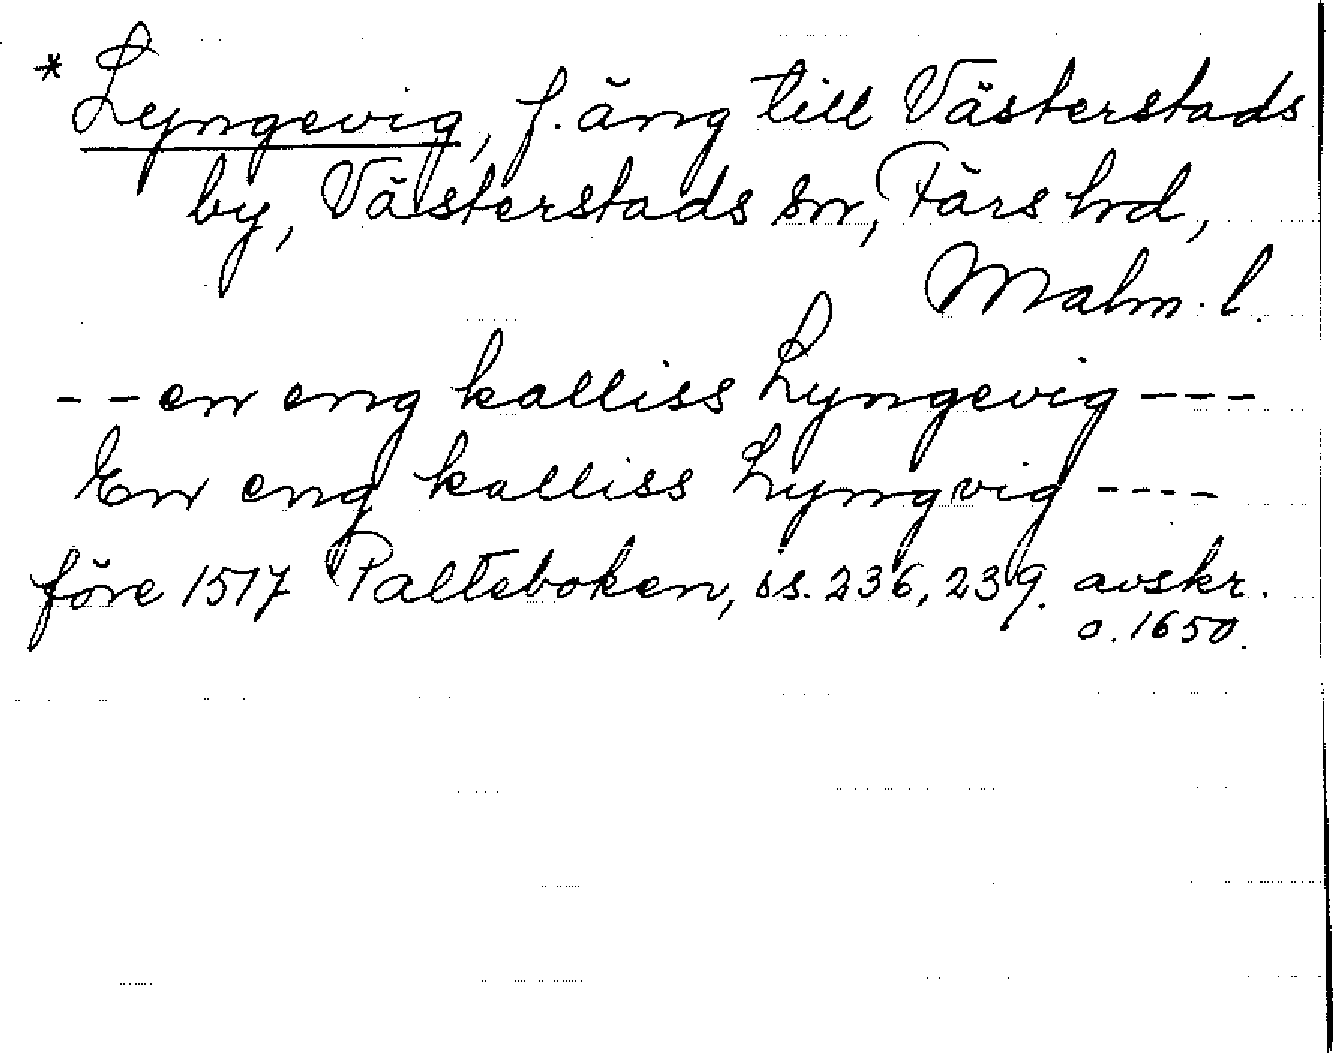 * Lyngevig, f. äng till Västerstads
by, Västerstads sn, Färs hrd,
Malm. l.
-- en eng kalliss Lyngevig ---
En eng kalliss Lyngvig ----
före 1517 Palteboken, ss. 236, 239. avskr.
o. 1650.